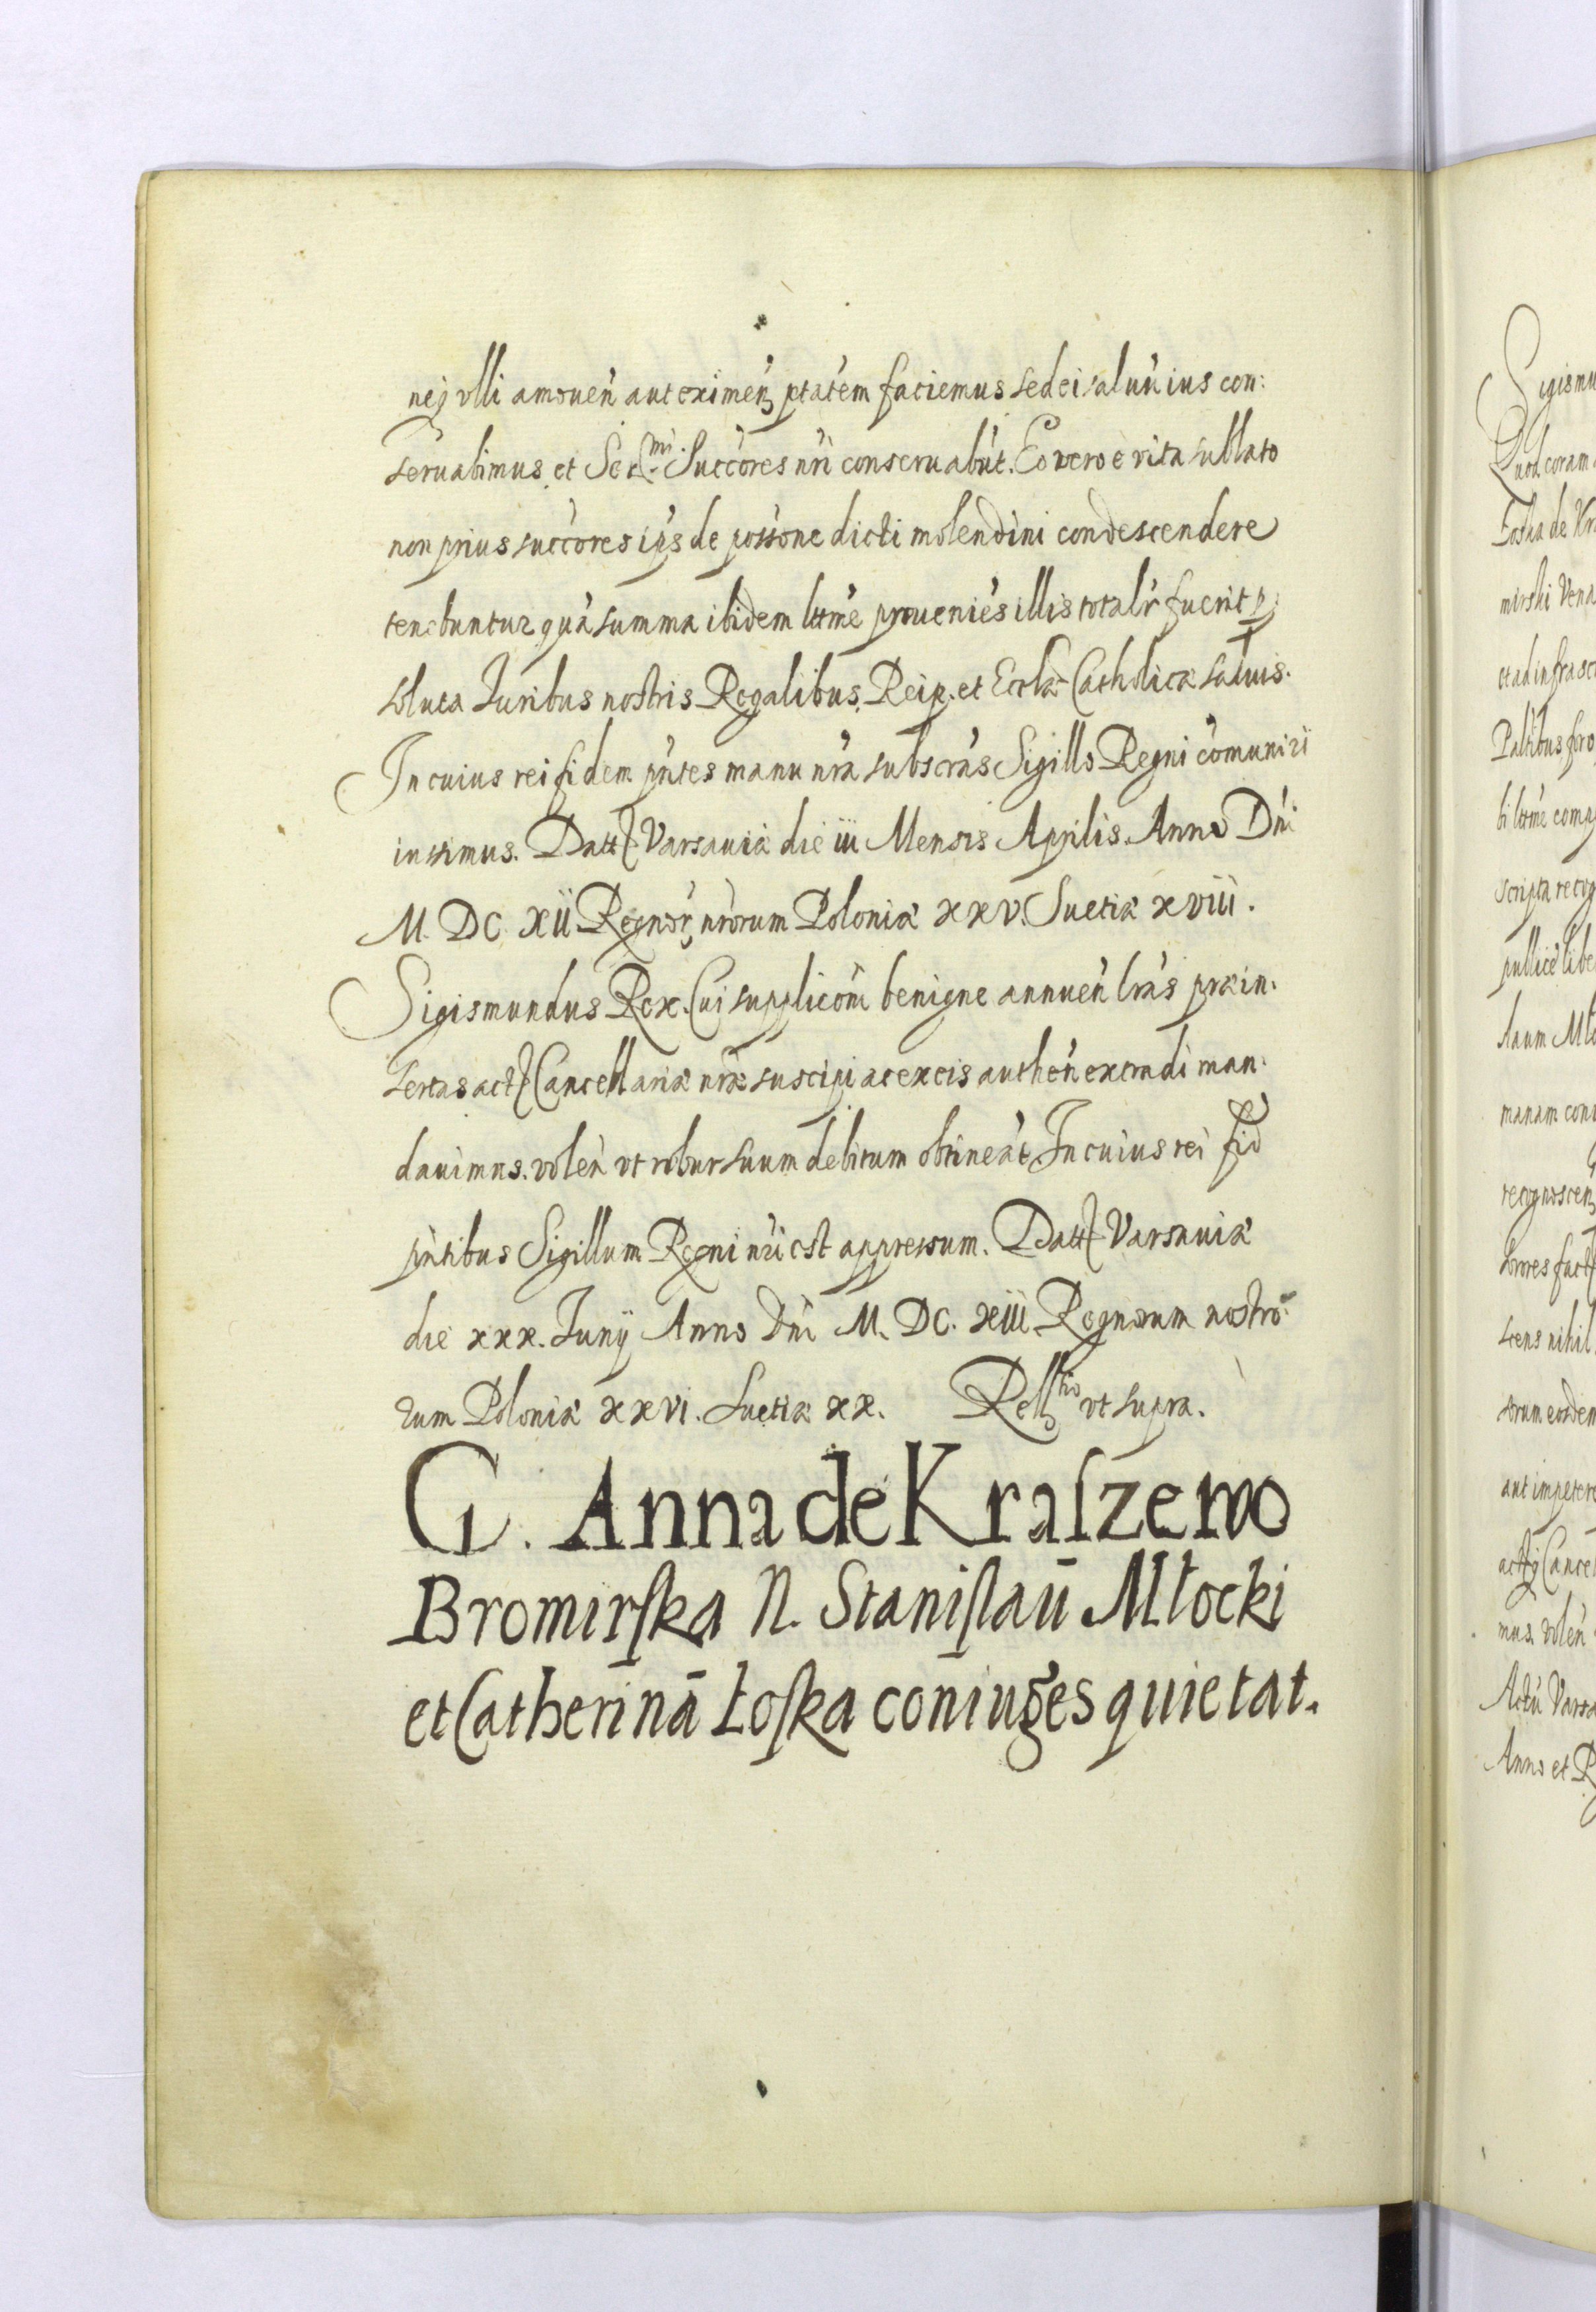 neq ulli amouen aut eximen ptatem faciemus sed ei saluu ius con:
seruabimus et Ser^mi Succores nri conseruabut. Eo vero è vita sublato
non prius succores ips de possone dicti molendini condescendere
tenebuntur quà summa ibidem lttme prouenies illis totalr fuerit p
soluta Juribus nostris Regalibus, Reip. et Eccla Catholicæ saluis.
In cuius rei fidem pntes manu nra subscras Sigillo Regni comuniri
iussimus. Datt Varsauiæ die iii Mensis Aprilis Anno Dni
M. DC. XII Regnor nrorum Poloniæ XXV. Suetiæ XVIII.
Sigismundus Rex. Cui suppliconi benigne annuen lras præin-
sertas act Cancellariæ nræ suscipi ac ex eis authen extradi man-
dauimus. volen vt robur suum debitum obtineat In cuius rei fid
pntibus Sigillum Regni nri est appressum. Datt Varsauiæ
die xxx. Junij Anno Dni M. DC. XIII Regnorum nostro-
rum Poloniæ XXVI. Suetiæ XX. Rell^tio vt supra.
G. Anna de Kraſzewo
Bromirſka N. Staniſlaū Młocki
et Catherinā Łoſka coniuges quietat.
Sigismu
Quod coram
Łoska de Kr
mirski Vena
et ad infrasc
bi lttme comp
scripta recog
publicè libe
manam con
recognoscen
scens nihil
sorum eosdem
aut impetere
mus. volen
Actu Varsa
Anno et R